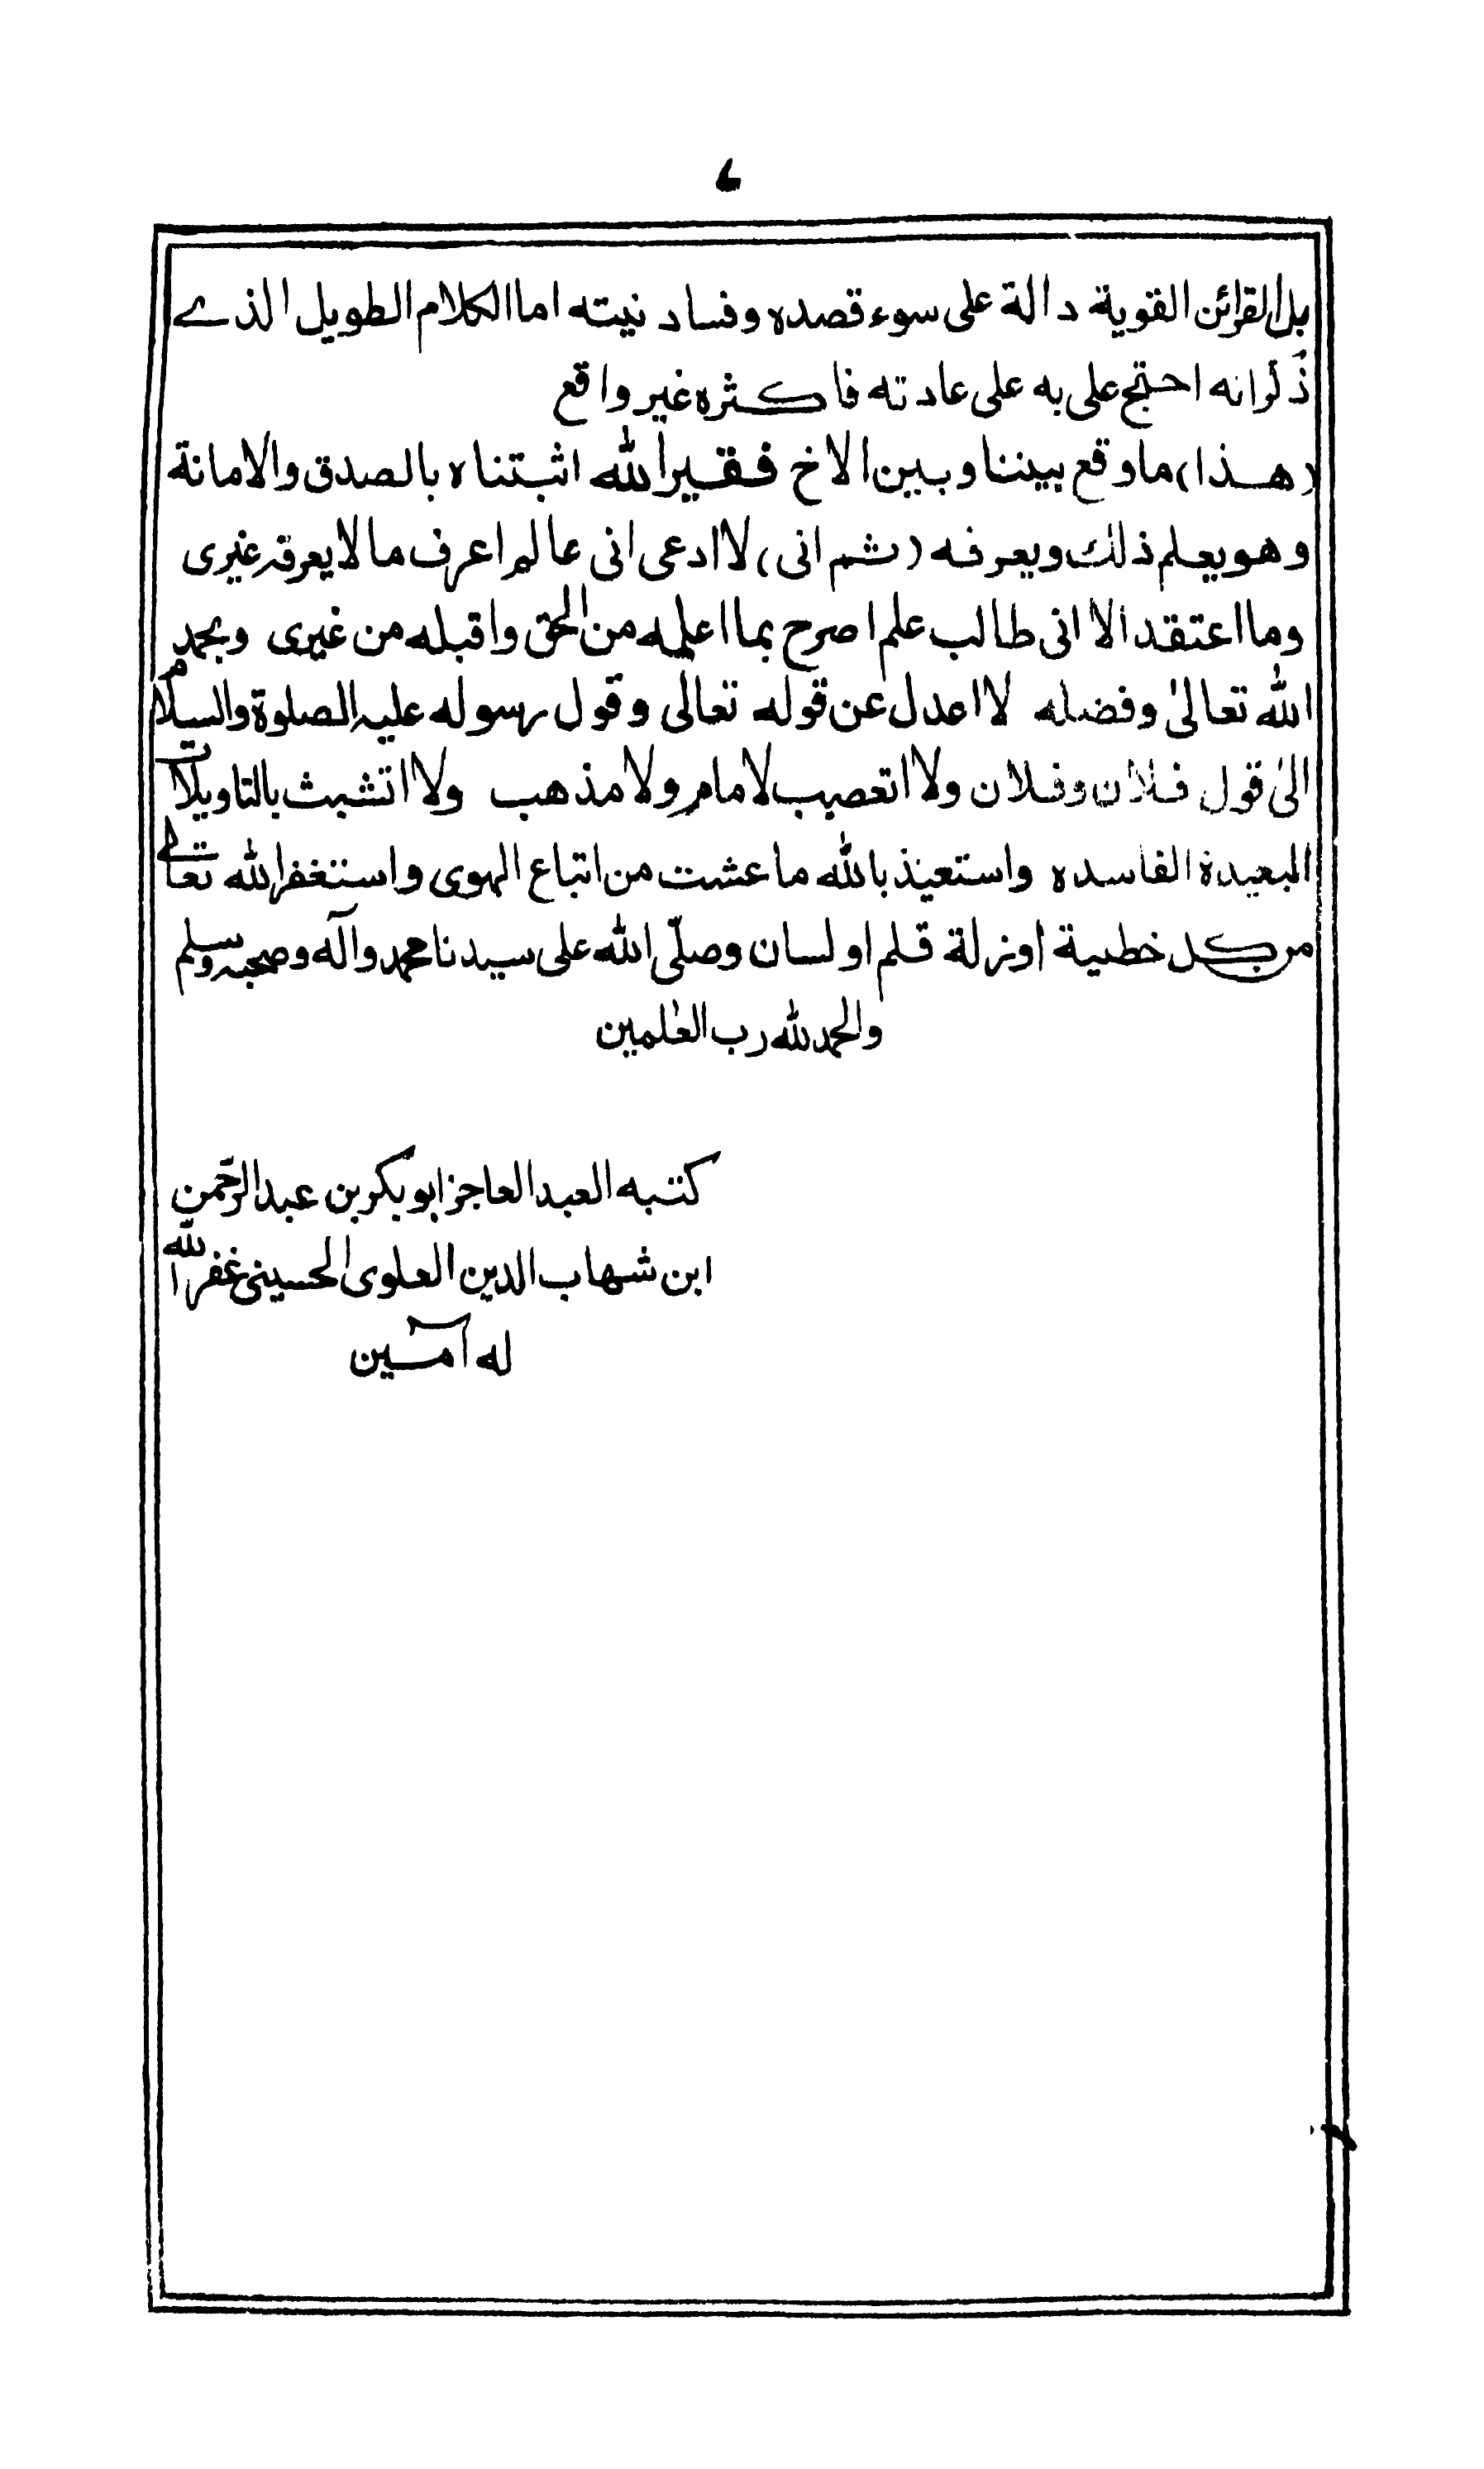 بل القرائن القوية دالة على سوء قصده وفساد نيته اما الكلام الطويل الذے
ذكرانه احتج على به على عادته فاكثره غير واقع
(هذا) ما وقع بيننا وبين الاخ فقير الله اثبتناه بالصدق والامانة
وهو يعلم ذلك ويعرفه (ثم انى) لا ادعى انى عالم اعرف ما لا يعرفه غيرى
وما اعتقد الا انى طالب علم اصرح بما اعلمه من الحق واقبله من غيرى وبحمد
الله تعالىٰ وفضله لا اعدل عن قوله تعالى وقول رسوله عليه الصلوة والسلام
الىٰ قول فلان وفلان ولا اتعصب لامام ولا مذهب ولا اتشبث بالتاويلات
البعيدة الفاسده واستعيذ بالله ما عشت من اتباع الهوى واستغفر الله تعالے
من كل خطيية اونزلة قلم او لسان وصلّى الله على سيدنا محمد وآله وصحبه وسلم
والحمد لله رب العٰلمين
كتبه العبد العاجز ابوبكر بن عبد الرحمن
ابن شهاب الدين العلوى الحسينى غفر الله
له آمين